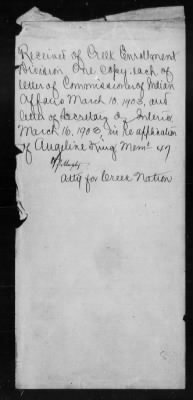 Receipt of Creek Enrollment
Division One copy each of
letter of Commissioner of Indian
Affairs March 10, 1903, and
letter of Secretary of Interior
March 16, 1903, in re application
of Angeline King Memt 47
Atty for Creek Nation